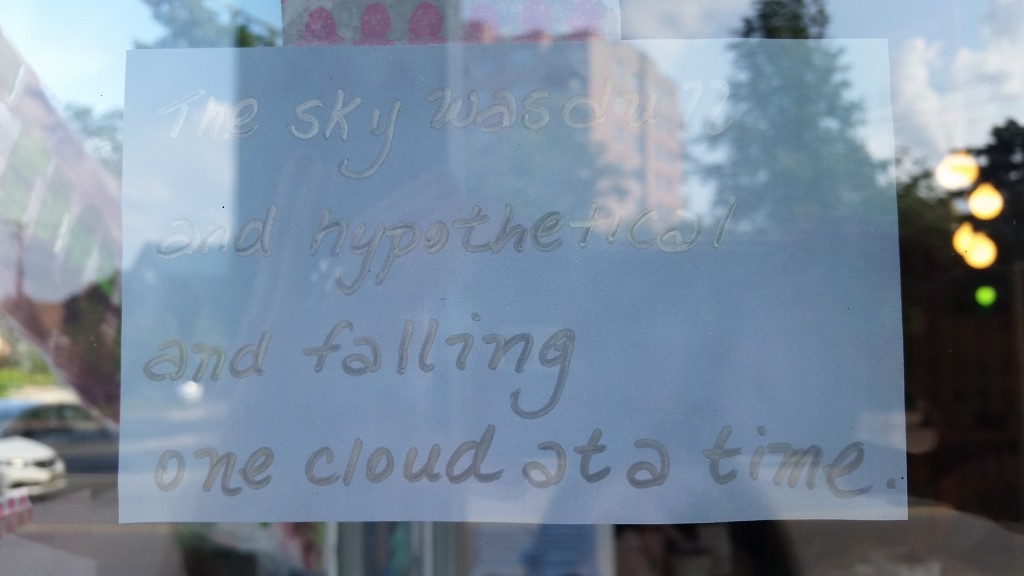 The sky was dull
and hypothetical
and falling
one cloud at a time.